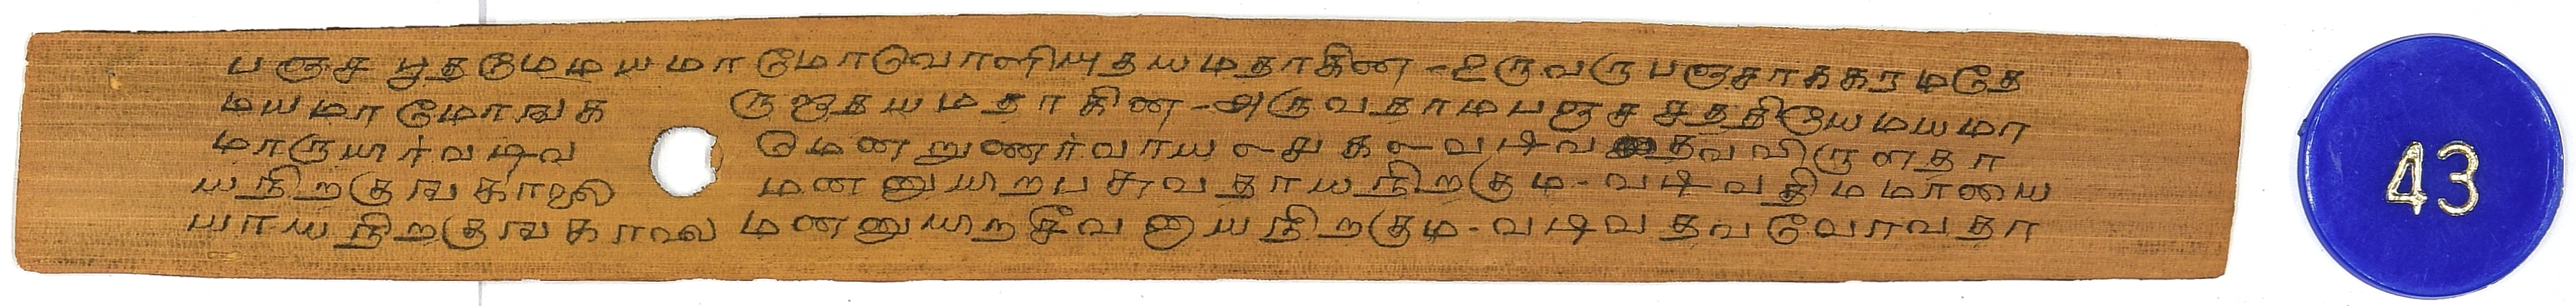 பஞ்ச பூதகுமமயமாமோடுவாளியுதயமதாகிண - உருவருபஞசாககரமதே
மயமாமோஙக ருஐதயமதாகிண - அருவதாமபஞச சத்தியேமயமா
மாருயிர்வடிவ மெணறுணர்வாய உசுகஉவடிவ தவவிருளதா
யநிறகுஙகாலை மனனுயிறபசுவதாயநிறகும - வடிவதிமமாயை
யாயநிறகுஙகாலை மணணுயிறசீவனாயநிறகும - வடிவதவவேரவதா
43